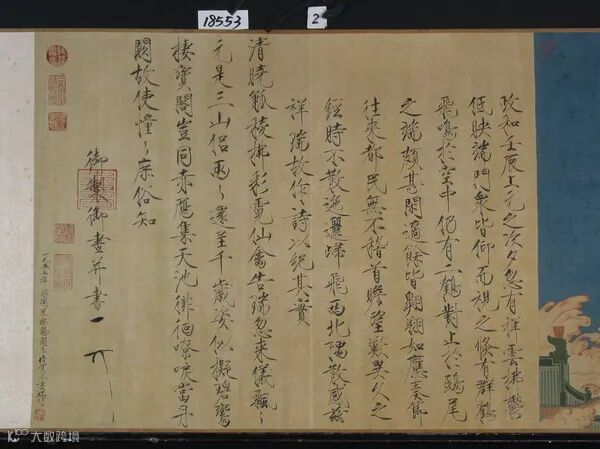 18553
2
政和壬辰上元之次夕忽有祥雲拂鬱
低映端門衆皆仰而視之倏有群鶴
飛鳴於空中仍有二鶴對止於鴟尾
之端頗甚閑適餘皆翱翔如應奏節
往來都民無不稽首瞻望歎異久之
經時不散迤邐歸飛西北隅散感茲
祥瑞故作詩以紀其實
清曉觚稜拂彩霓仙禽告瑞忽來儀飄々
元是三山侶兩々還呈千歲姿似擬碧鸞
棲寶閣豈同赤鴈集天池徘徊嘹唳當丹
闕故使憧々庶俗知
御製御畫并書
一九五五年
大数跨境